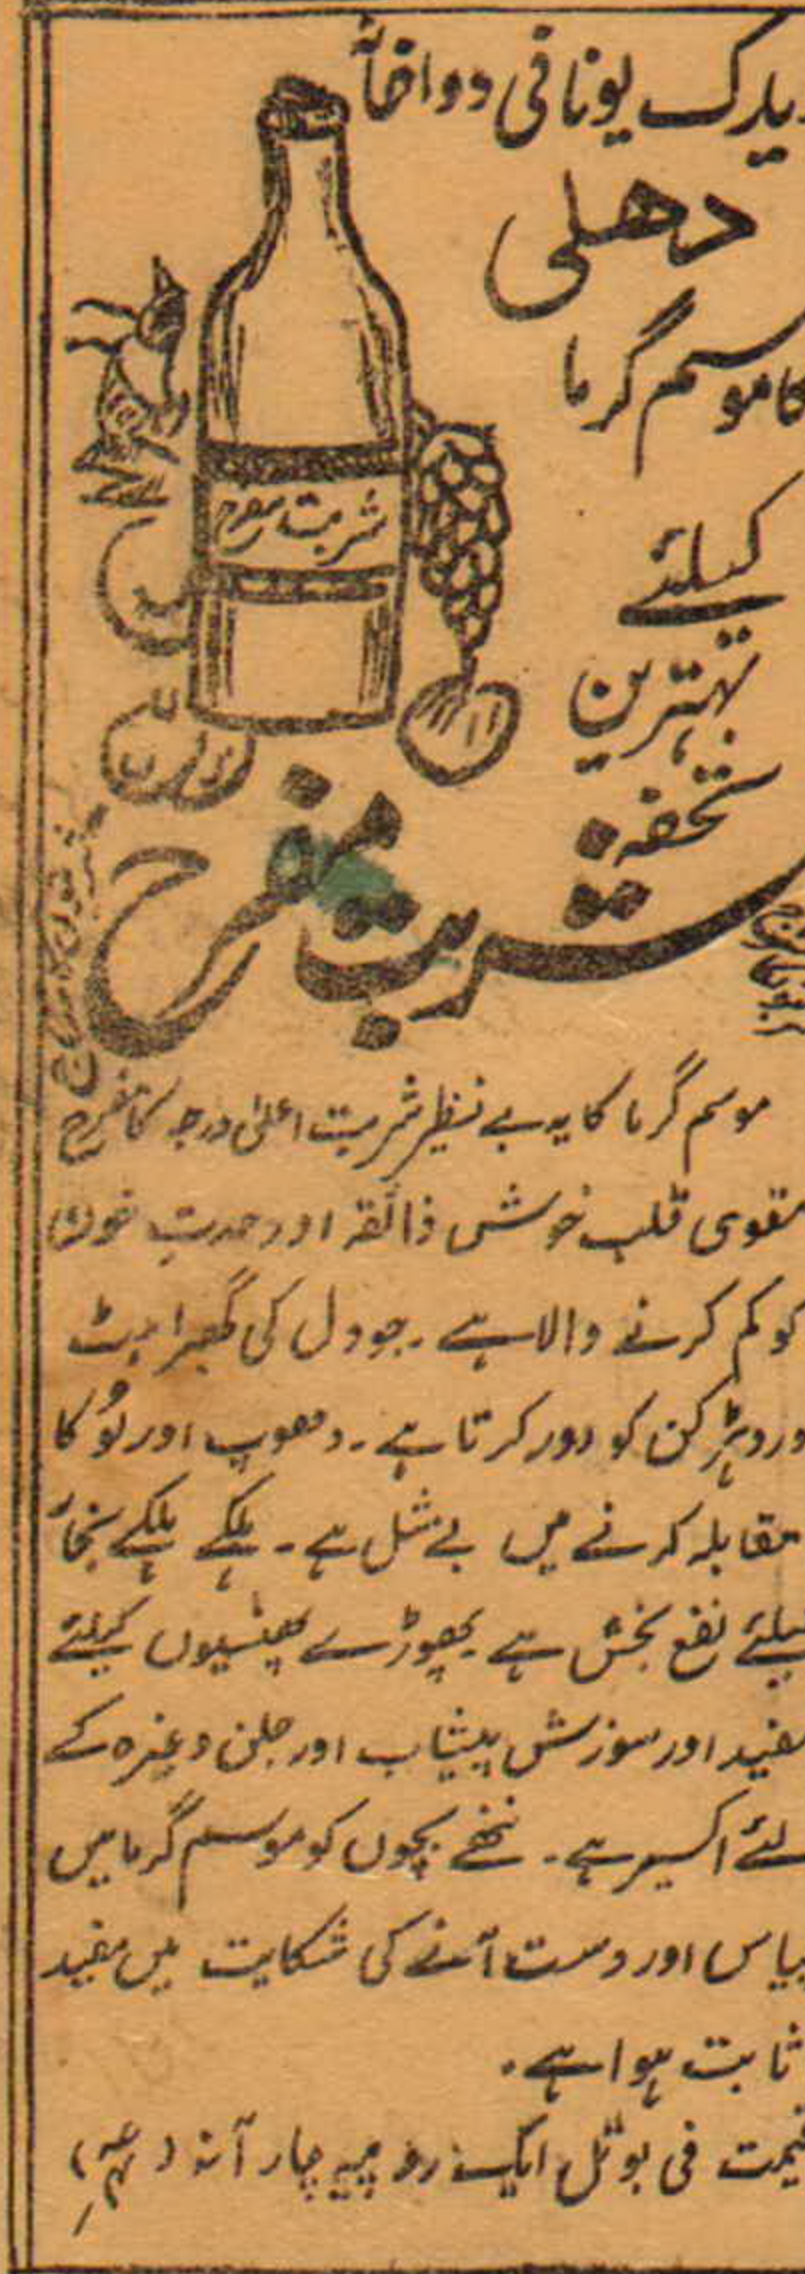 ویدک یونانی دواخانہ
دھلی
کا موسم گرما
کیلئے
بہترین
تحفہ
شربت مفرح
شربت مفرح
موسم گرما کا یہ بے نظیر شربت اعلیٰ درجہ کا مفرح
مقوی قلب خوش ذائقہ اور حدتِ خون
کو کم کرنے والا ہے ۔ جو دل کی گھبراہٹ
اور دھڑکن کو دور کرتا ہے ۔ دھوپ اور لُو کا
مقابلہ کرنے میں بے مثل ہے ۔ ہلکے ہلکے بخار
کیلئے نفع بخش ہے پھوڑے پھنسیوں کیلئے
مفید اور سوزش پیشاب اور جلن وغیرہ کے
لئے اکسیر ہے ۔ ننھے بچوں کو موسم گرما میں
پیاس اور دست آنے کی شکایت میں مفید
ثابت ہوا ہے ۔
قیمت فی بوتل ایک روپیہ چار آنہ